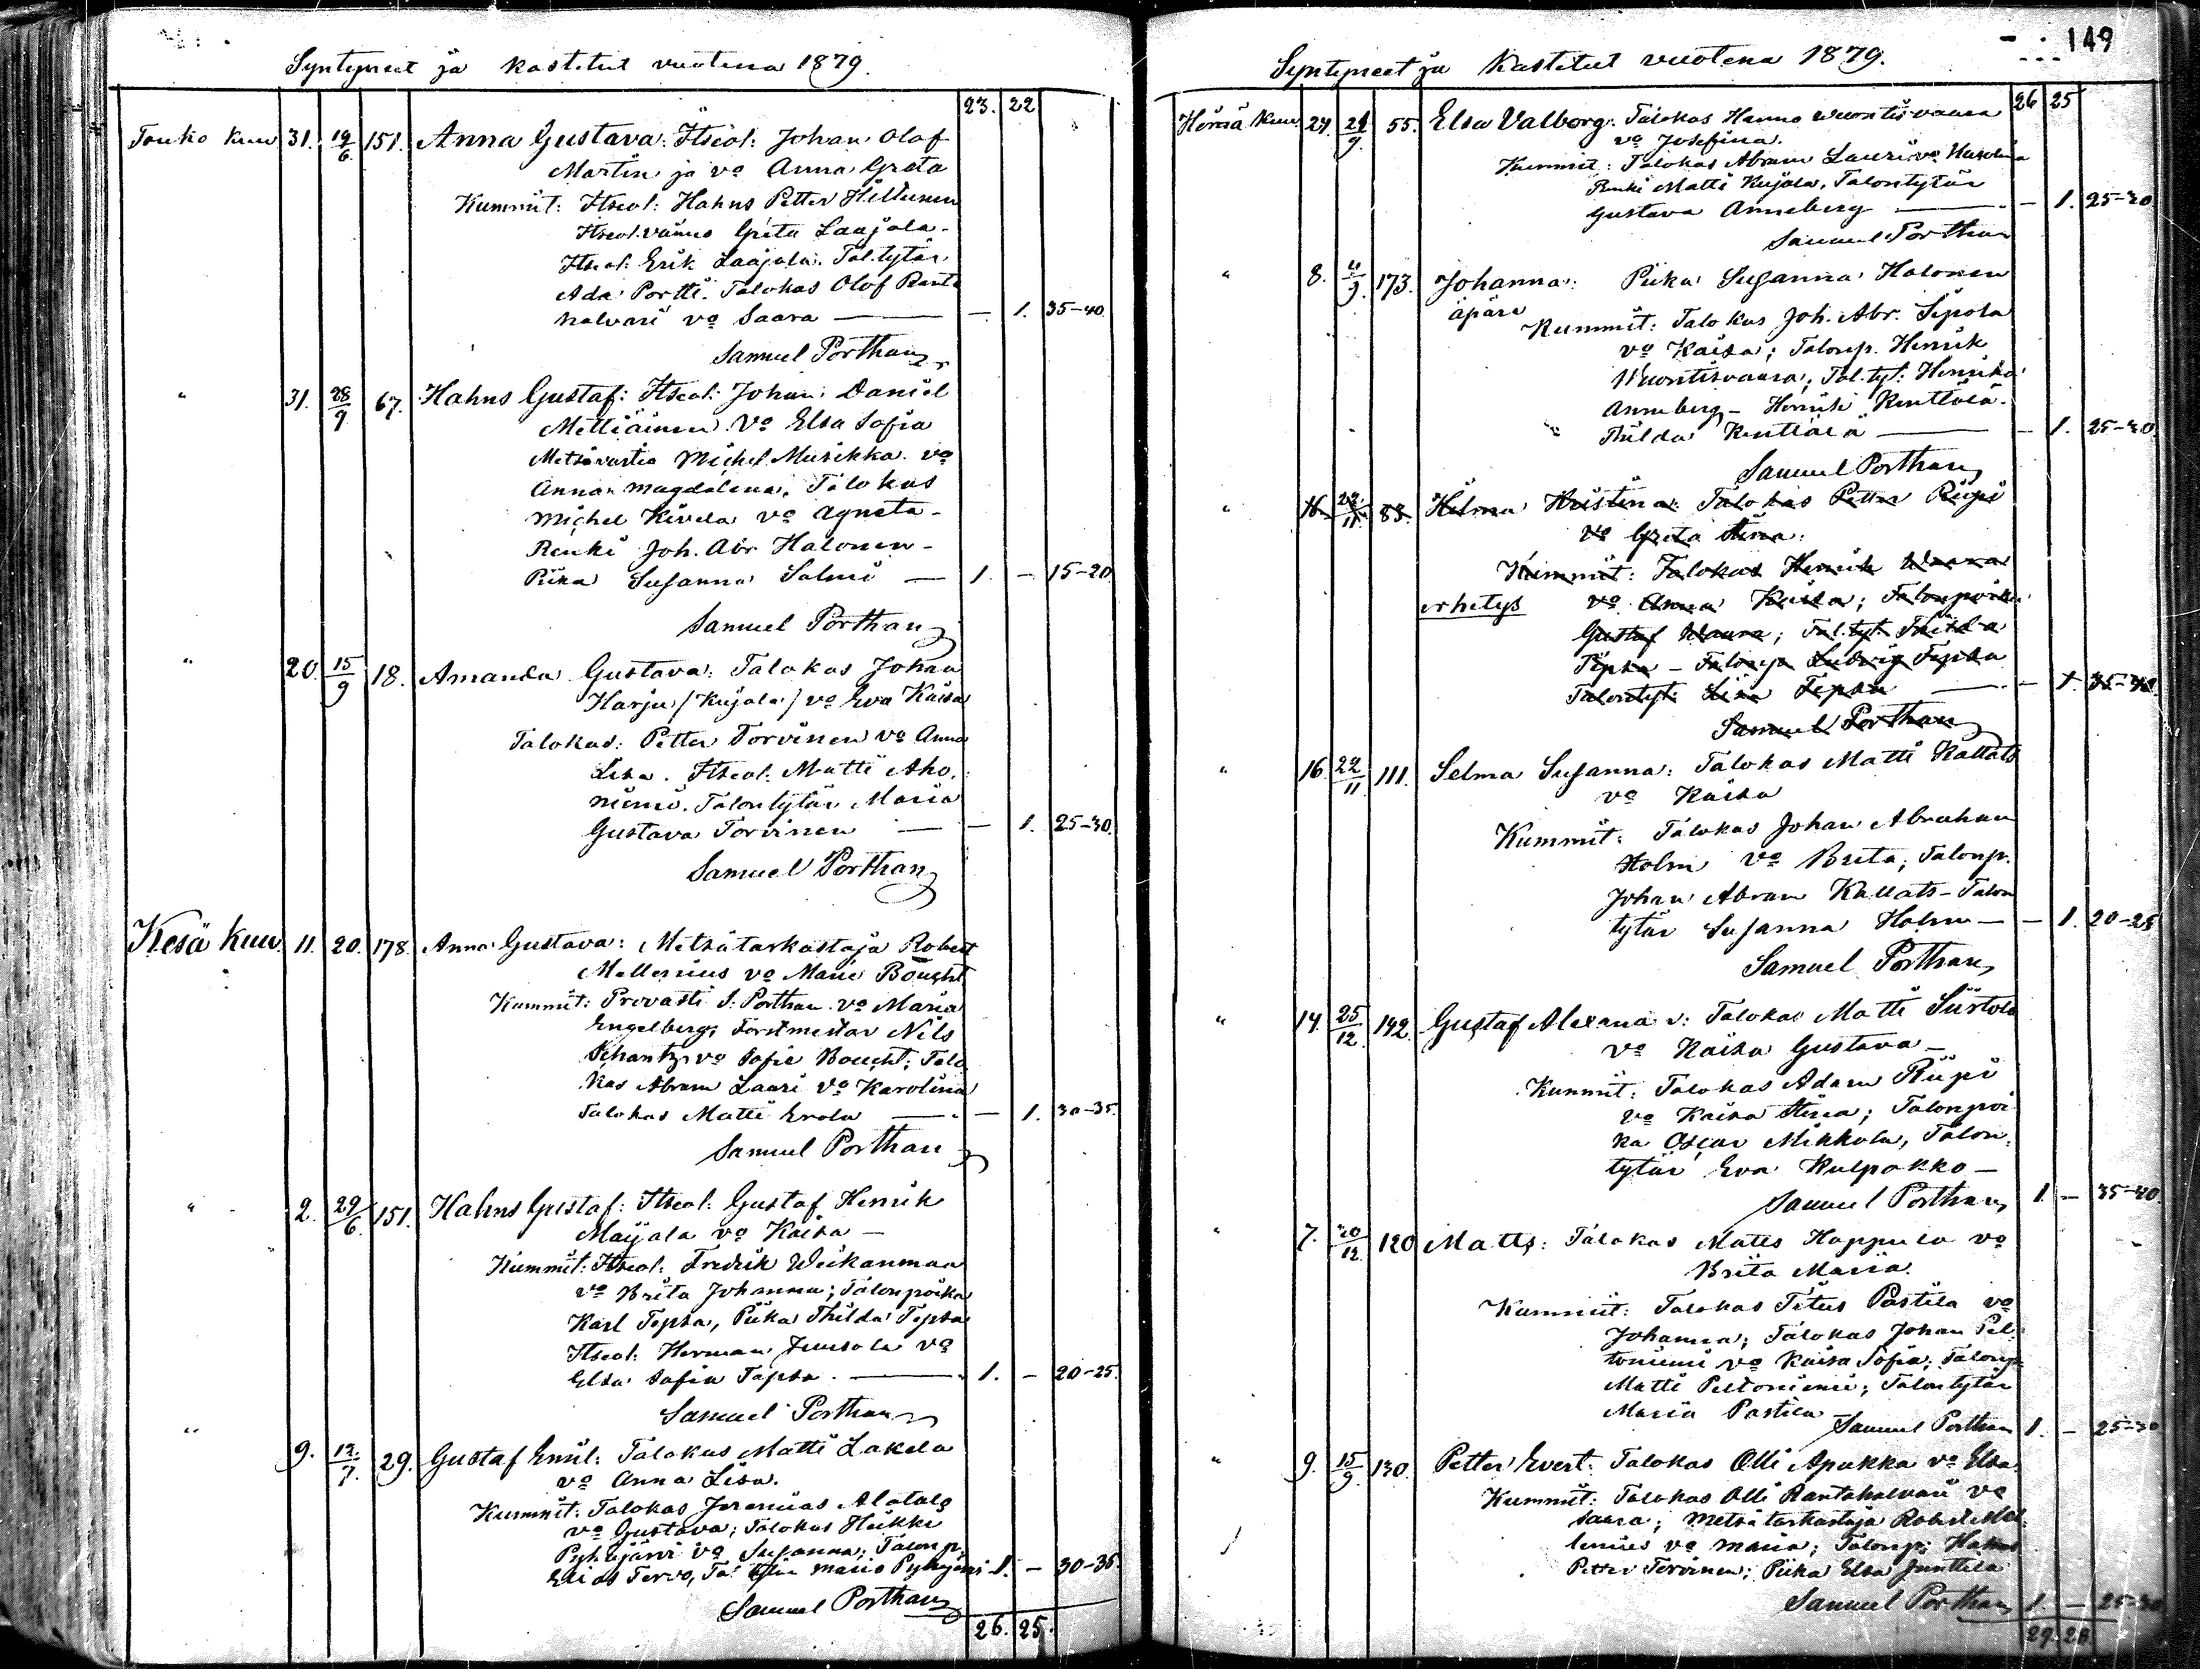 Syntyneet ja kastetut vuotena 1879.
23. 22
Touko kuu 31. 19/6. 151. Anna Gustava: Itseol: Johan Olof
Martin ja vo Anna Greta
Kummit: Itseol: Hahns Petter Hiltunen
Itseol. vaimo Greta Laajala.
Itseol: Erik Laajala. Tal. tytär
Ada Portti. Talokas Olof Ranta
halvari vo Saara — — 1. 35-40.
Samuel Porthan
" 31. 28/9 67. Hahns Gustaf: Itseol: Johan Daniel
Mettiäinen Vo Elsa Sofia
Metsävartia Michel Musikka vo
Anna Magdalena, Talokas
Michel Kivela vo Agneta -
Renki Joh. Abr. Halonen -
Piika Susanna Salmi — 1. — 15-20
Samuel Porthan
" 20. 15/9 18. Amanda Gustava: Talokas Johan
Harju / Kujala / vo Eva Kaisa
Talokas: Petter Torvinen vo Anna
Lisa. Itseol: Matti Aho.
niemi. Talontytär Maria
Gustava Torvinen — — 1. 25-30.
Samuel Porthan
Kesä kuu. 11. 20. 178. Anna Gustava: Metsätarkastaja Robert
Mellenius vo Maria Boucht
Kummit: Provasti S: Porthan vo Maria
Engelberg; Forstmestar Nils
Schantz vo Sofie Boucht; Talo
kas Abram Lauri Vo Karolina
Talokas Matti Erola — — 1. 30-35.
Samuel Porthan
" 2. 29/6. 151. Hahns Gustaf: Itseol: Gustaf Henrik
Maijala vo Kaisa —
Kummit: Itseol: Fredrik Weikanmaa
vo Brita Johanna; Talonpoika
Karl Tepsa, Piika Thilda Tepsa
Itseol: Herman Juusola vo
Elsa Sofia Tepsa. — 1. — 20-25.
Samuel Porthan
" 9. 12/7. 29. Gustaf Emil: Talokas Matti Lakela
vo Anna Lisa.
Kummit: Talokas Jeremias Alatalo
vo Gustava; Talokas Heikki
Pyhäjärvi vo Susanna; Talonp.
Elias Tervo, Tal tytär Maria Pyhäjärvi 1. — 30-35
Samuel Porthan
26. 25.
149
Syntyneet ja Kastetut vuotena 1879.
26 25
Heinä kuu. 24. 21/9 55. Elsa Valborg. Talokas Hannu Wuontisvaara
vo Josefina.
Kummit: Talokas Abram Lauri vo Karolina
Renki Matti Kujala, Talontytär
Gustava Anneberg — — 1. 25-30
Samuel Porthan
" 8. 11/9. 173. Johanna: Piika Susanna Halonen
äpärä
Kummit: Talokas Joh. Abr. Sipola
vo Kaisa; Talonp. Henrik
Wuontisvaara; Tal. tyt: Henrika
Anneberg - Henrik Kenttälä.
Thilda Kenttälä — — 1. 25-30.
Samuel Porthan
" 16. 22/11. 83. Hilma Kristina: Talokas Petter Riipi
Vo Greta Stina.
Kummit: Talokas Henrik Waara
erhetys vo Anna Kaisa; Talonpoika
Gustaf Waara; Tal. tyt. Thilda
Tepsa - Talonp. Ludvig Tepsa
Talontyt: Lisa Tepsa — — 1. 35-40.
Samuel Porthan
" 16. 22/11 111. Selma Susanna: Talokas Matti Kallats
vo Kaisa
Kummit: Talokas Johan Abraham
Holm vo Brita; Talonp.
Johan Abram Kallats - Talon
tytär Susanna Holm — — 1. 20-25
Samuel Porthan
" 14. 25/12. 142. Gustaf Alexana r: Talokas Matti Siirtola
vo Kaisa Gustava —
Kummit: Talokas Adam Riipi
vo Kaisa Stina; Talonpoi
ka Oscar Mikkola, Talon.
tytär Eva Kulpakko —
Samuel Porthan 1. — 35-40.
" 7. 20/12. 120 Matts: Talokas Matts Hoppula vo
Brita Maria.
Kummit: Talokas Titus Postila vo
Johanna; Talokas Johan Pel.
toniemi vo Kaisa Sofia; Talonp.
Matti Peltoniemi; Talontytär
Maria Postila
Samuel Porthan 1. — 25-30
" 9. 15/9. 130. Petter Evert: Talokas Olli Apukka vo Elsa
Kummit: Talokas Olli Rantahalvari vo
Saara; Metsätarkastaja Robert Mel
lenius vo Maria; Talonp: Hahns
Petter Torvinen; Piika Elsa Junttila
Samuel Porthan 1. — 25-30
29. 28